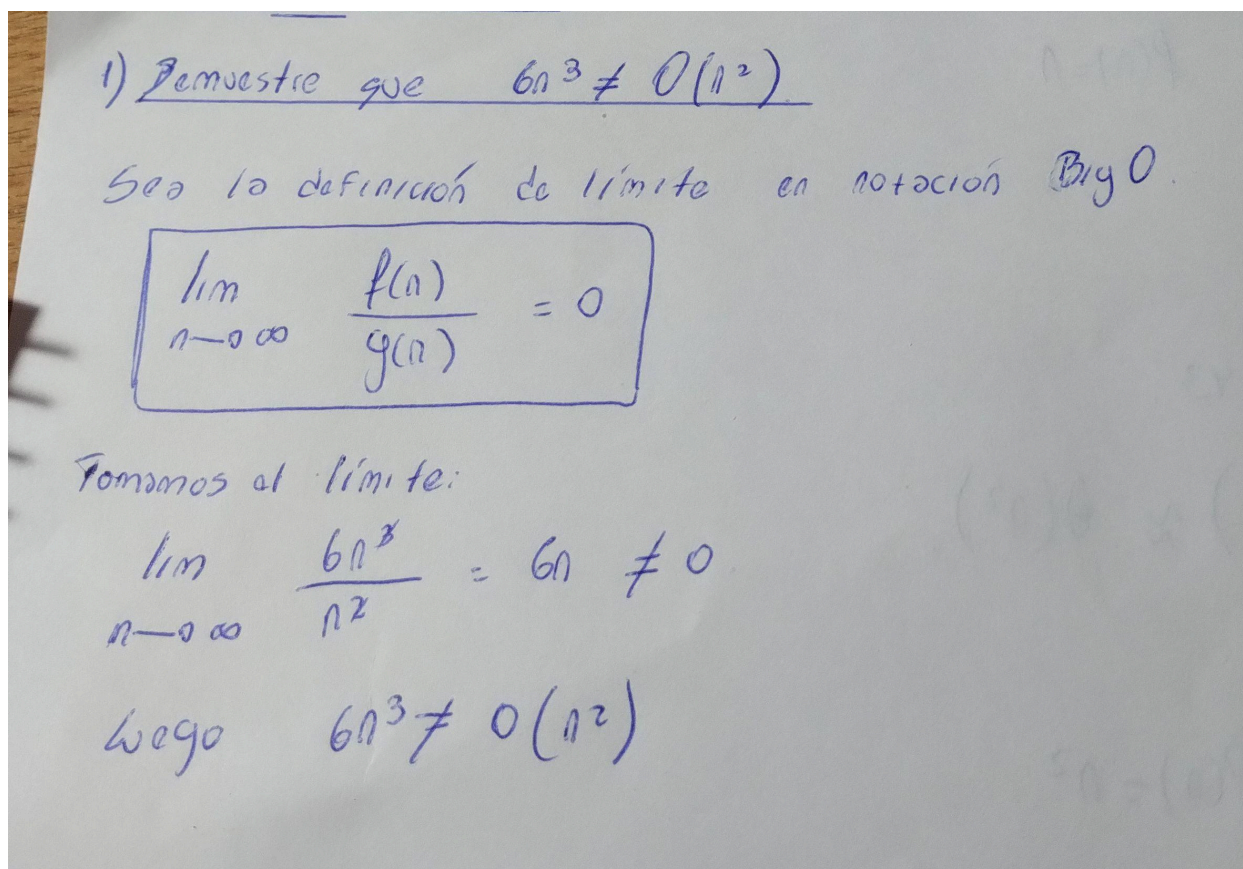 1) Demuestre que 6n³ ≠ O(n²)
Sea la definición de límite en notación Big O.
lim f(n)/g(n) = 0
n→∞
Tomamos el límite:
lim 6n³/n² = 6n ≠ 0
n→∞
Luego 6n³ ≠ O(n²)